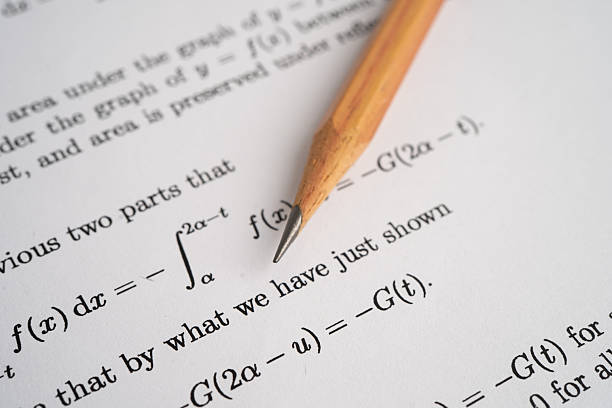 area under the graph of y = f(x) between
der the graph of y = f(x)
st, and area is preserved under refle
vious two parts that
f(x) dx = − ∫_α^{2α−t} f(x) = −G(2α − t).
that by what we have just shown
−G(2α − u) = −G(t).
= −G(t) for
0 for all